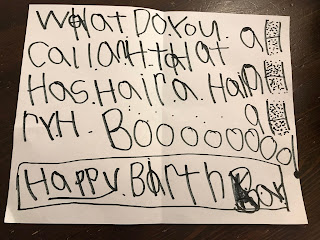 What Do You. a
Call ant that
Has. Hair a. Hair
ryH. Booooooooo
Happy. Birth Day